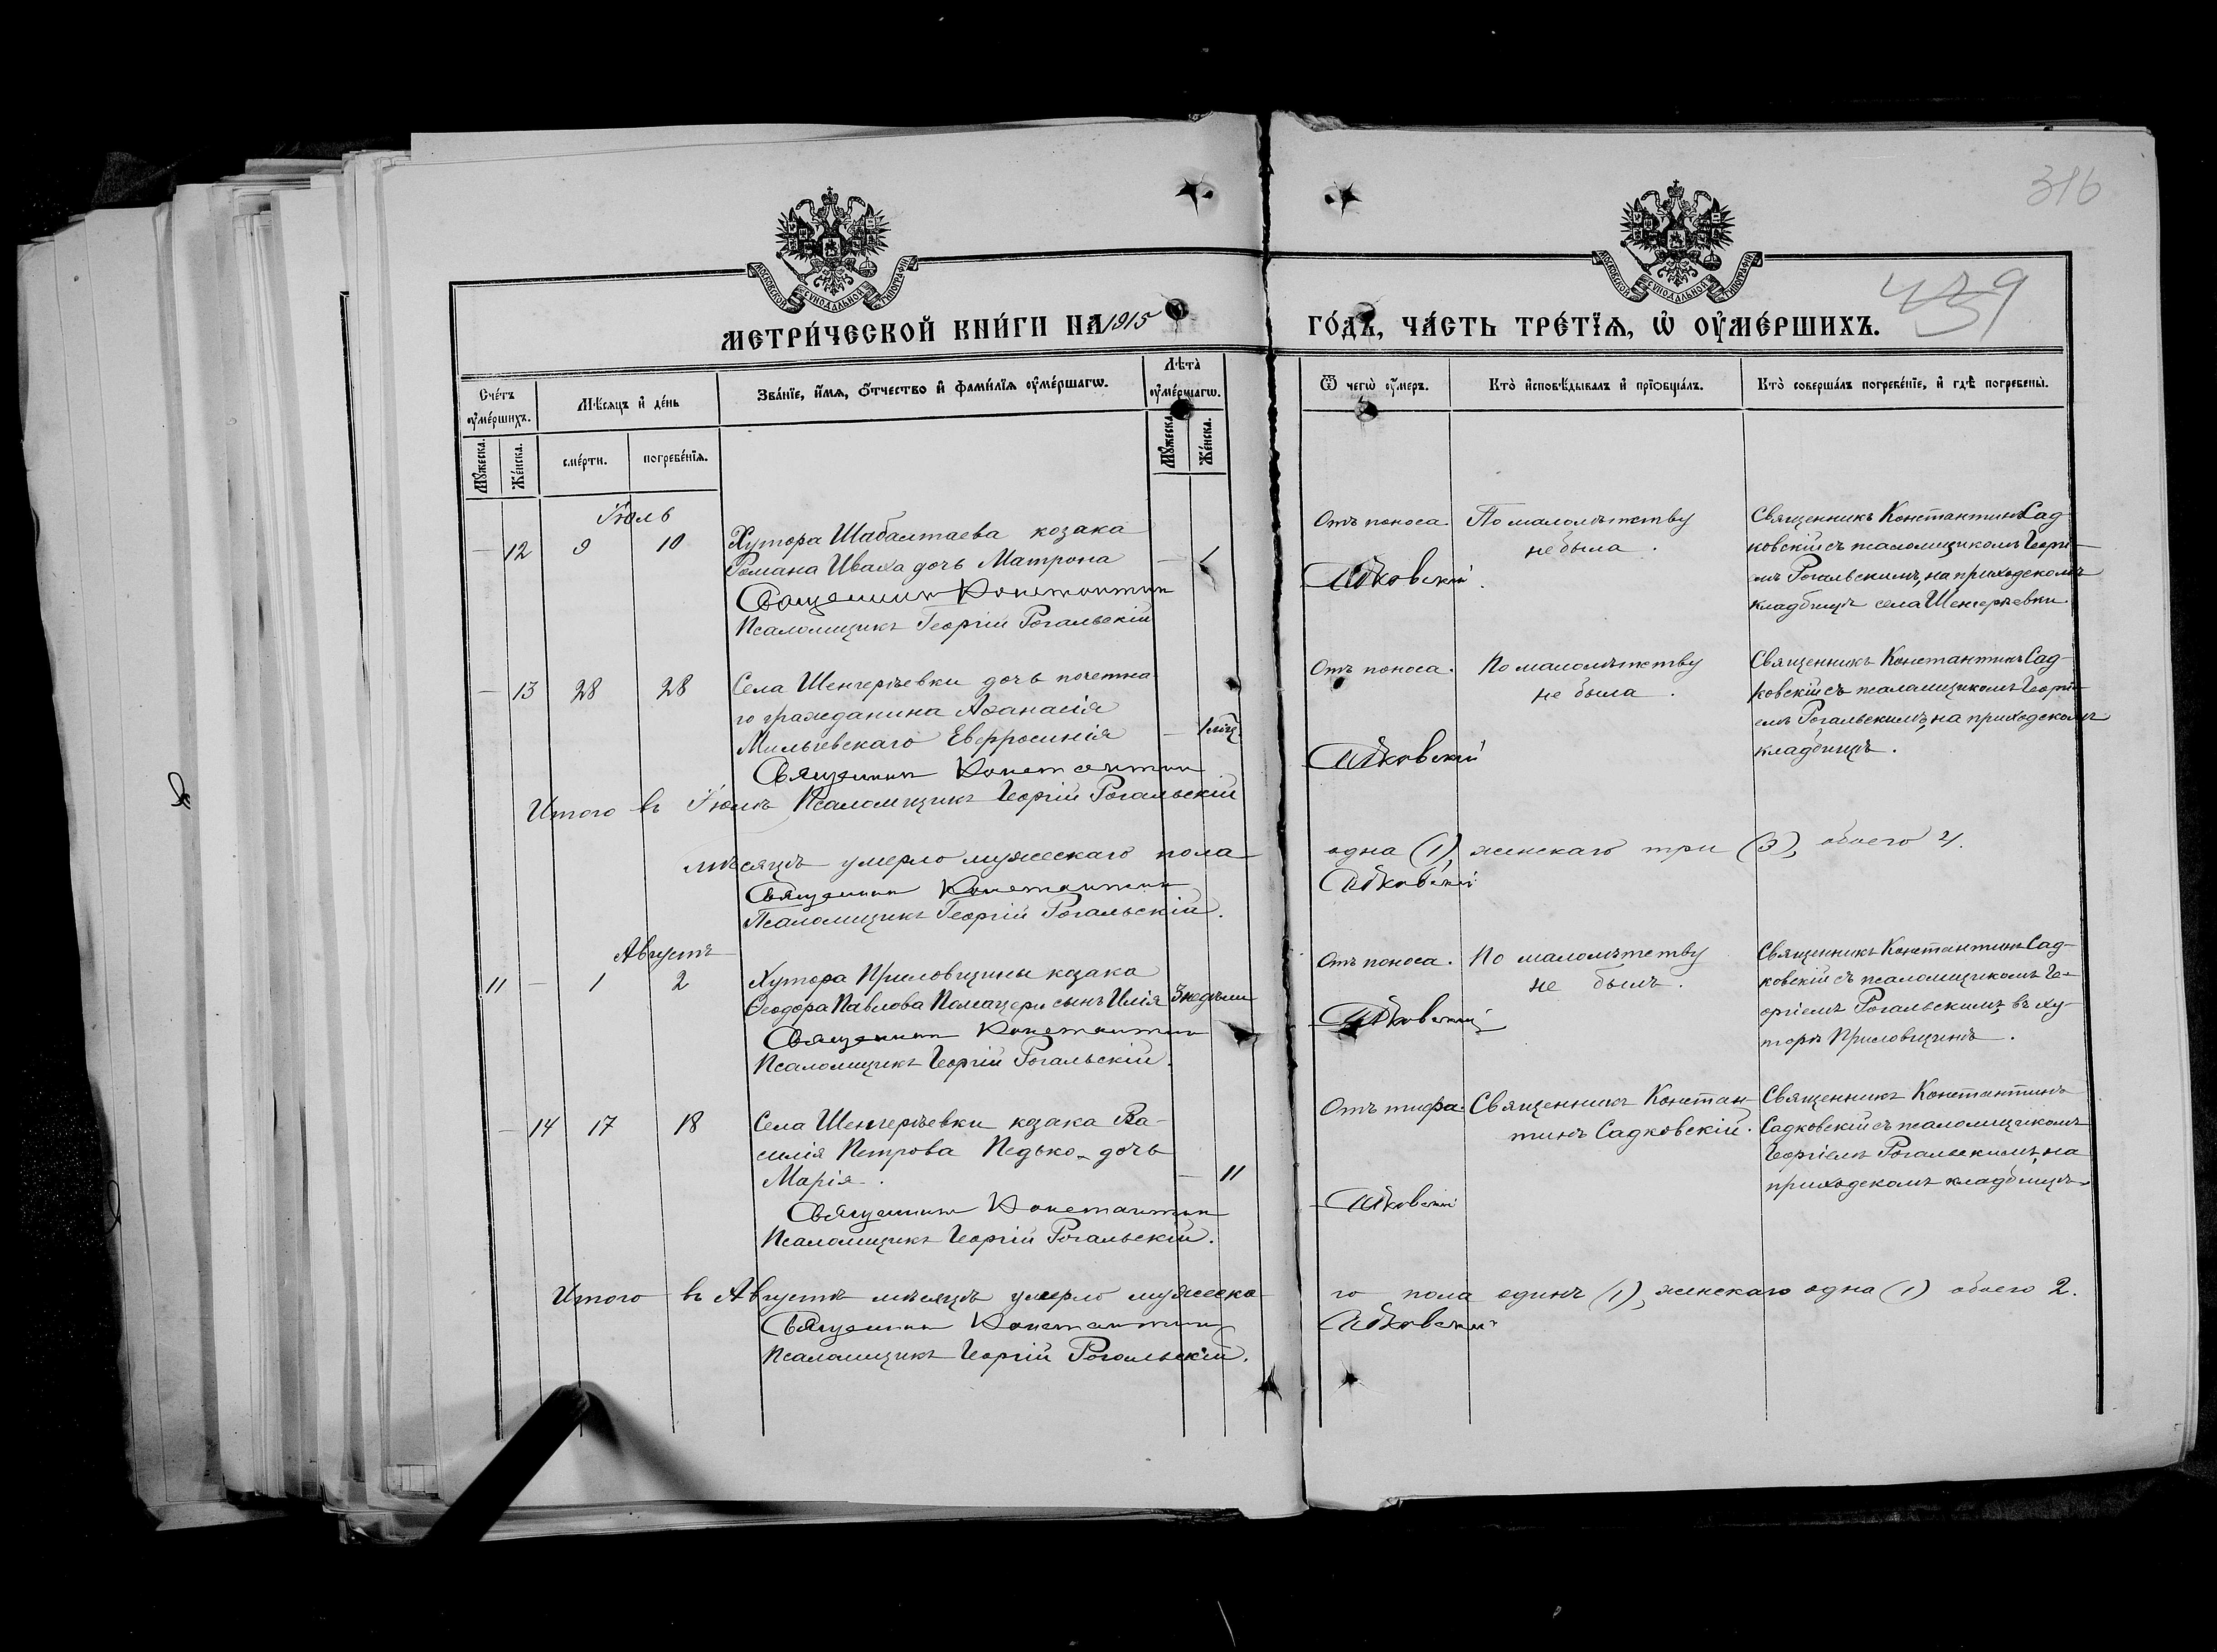 316
459
МОСКОВСКОЙ СѴНОДАЛЬНОЙ ТИПОГРАФІИ
МОСКОВСКОЙ СѴНОДАЛЬНОЙ ТИПОГРАФІИ
МЕТРИ́ЧЕСКОЙ КНИ́ГИ НА 1915 ГО́ДЪ, ЧА́СТЬ ТРЕ́ТЇѦ, Ѡ҆ ОУ҆МЕ́РШИХЪ.
Сче́тъ оу҆ме́ршихъ.
Мѣ́сяцъ и҆ де́нь
Зва́нїе, и҆́мя, ѻ҆́тчество и҆ фами́лїя оу҆ме́ршагѡ.
Лѣта̀ оу҆ме́ршагѡ.
Ѿ чегѡ̀ оу҆́меръ.
Кто̀ и҆сповѣ́дывалъ и҆ прїѡбща́лъ.
Кто̀ соверша́лъ погребе́нїе, и҆ гдѣ̀ погребены̀.
Мꙋ́жеска.
Же́нска.
сме́рти.
погребе́нїя.
Мꙋ́жеска.
Же́нска.
Іюль
— 12 9 10
Хутора Шабалтаева козака
Романа Иваха дочь Матрона
— 1
Священник Константин
Псаломщикъ Георгій Рогальскій
Отъ поноса
Садковскій.
По малолѣтству
не была.
Священникъ Константинъ Сад-
ковскій съ псаломщикомъ Георгі-
емъ Рогальскимъ, на приходскомъ
кладбищѣ села Шенгерѣевки.
— 13 28 28
Села Шенгерѣевки дочь почетна
го гражданина Аѳанасія
Мильевскаго Евфросинія
— 1 мѣц.
Священник Константин
Псаломщикъ Георгій Рогальскій
Отъ поноса.
Садковскій
По малолѣтству
не была.
Священникъ Константинъ Сад-
ковскій съ псаломщикомъ Георгі-
емъ Рогальскимъ, на приходскомъ
кладбищѣ.
Итого въ Іюлѣ
мѣсяцѣ умерло мужескаго пола одна (1), женскаго три (3), обоего 4.
Священник Константин Садковскій
Псаломщикъ Георгій Рогальскій.
Августъ
11 — 1 2
Хутора Присловщины козака
Ѳеодора Павлова сынъ Илія
3 недѣли
Священник Константин
Псаломщикъ Георгій Рогальскій.
Отъ поноса.
Садковскій
По малолѣтству
не былъ.
Священникъ Константинъ Сад-
ковскій съ псаломщикомъ Ге-
оргіемъ Рогальскимъ, въ ху-
торѣ Присловщинѣ.
— 14 17 18
Села Шенгерѣевки козака Ва-
силія Петрова Педько дочь
Марія.
— 11
Священник Константин
Псаломщикъ Георгій Рогальскій.
Отъ тифа.
Садковскій
Священникъ Констан
тинъ Садковскій.
Священникъ Константинъ
Садковскій съ псаломщикомъ
Георгіемъ Рогальскимъ, на
приходскомъ кладбищѣ.
Итого въ Августѣ мѣсяцѣ умерло мужеска го пола одинъ (1), женскаго одна (1) обоего 2.
Священник Константин Садковскій
Псаломщикъ Георгій Рогальскій.